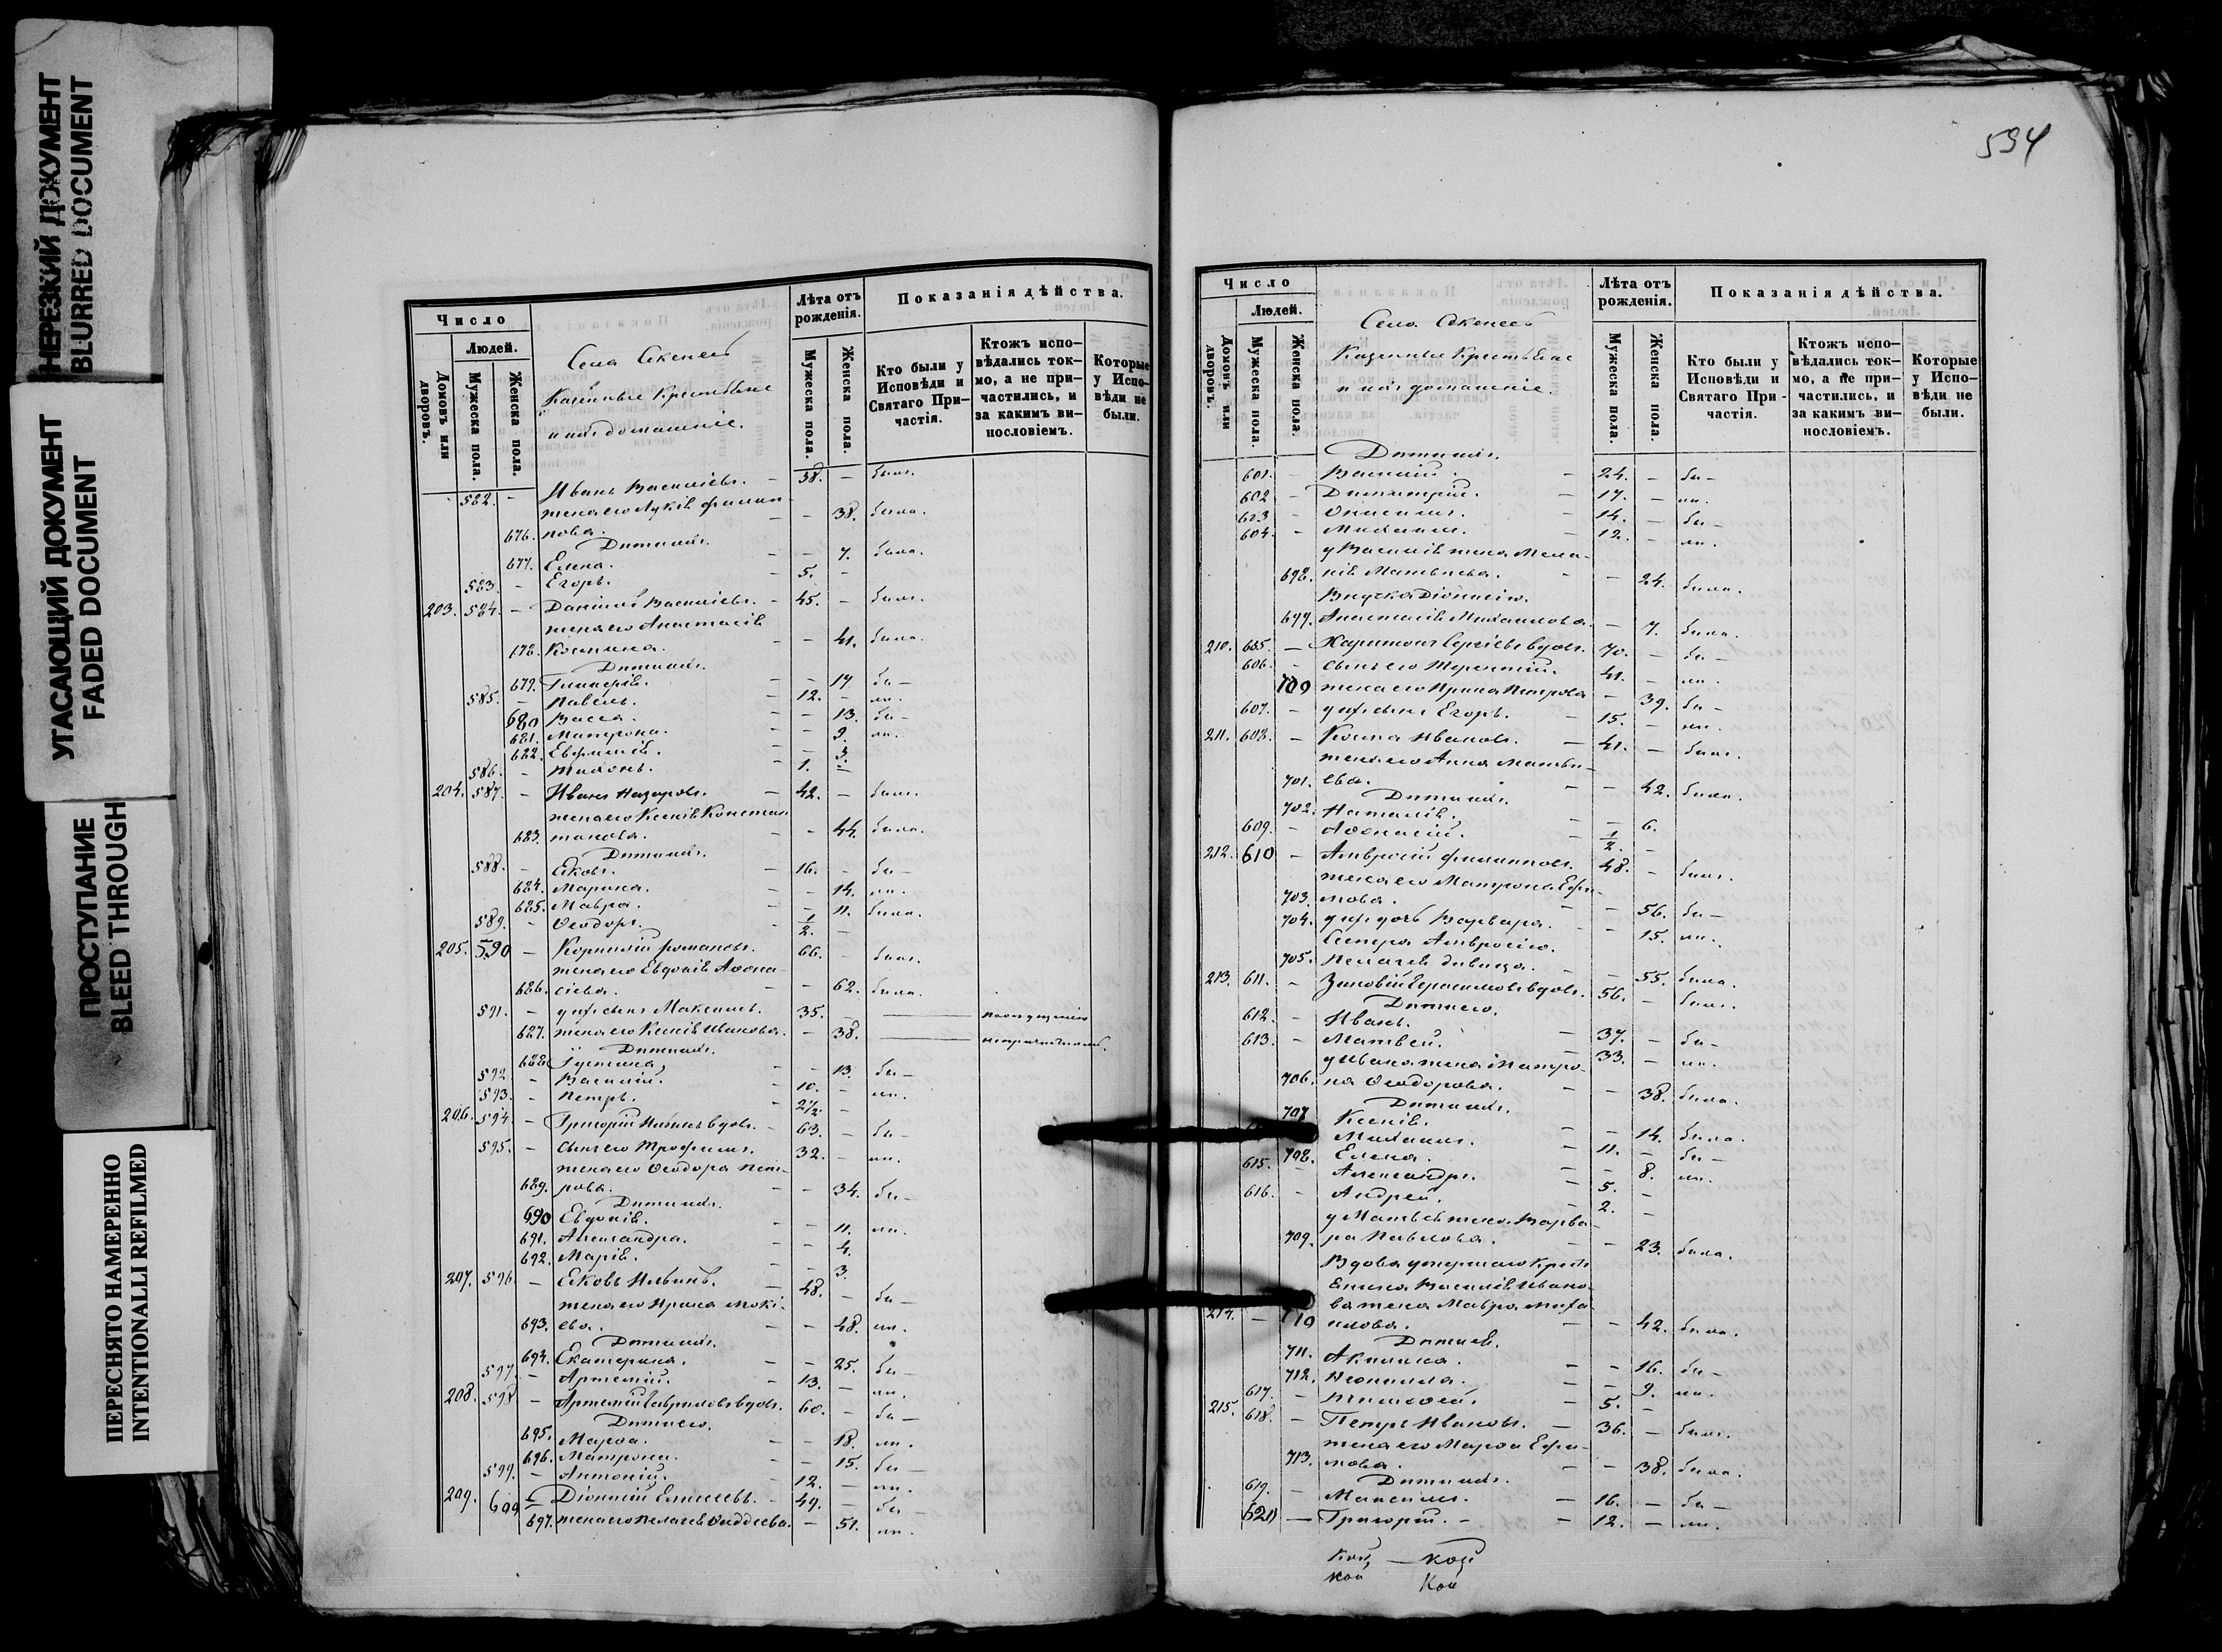 НЕРЕЗКИЙ ДОКУМЕНТ
BLURRED DOCUMENT
УГАСАЮЩИЙ ДОКУМЕНТ
FADED DOCUMENT
ПРОСТУПАНИЕ
BLEED THROUGH
ПЕРЕСНЯТО НАМЕРЕННО
INTENTIONALLI REFILMED
Число
Людей.
Домовъ или дворовъ.
Мужеска пола.
Женска пола.
Села
Казенные Крестьяне
и ихъ домашніе.
Лѣта отъ рожденія.
Мужеска пола.
Женска пола.
Показанія дѣйства.
Кто были у Исповѣди и Святаго Причастія.
Ктожъ исповѣдались токмо, а не причастились, и за какимъ винословіемъ.
Которые у Исповѣди не были.
582. – Иванъ Васильевъ. – 58. – былъ.
жена его Лукія Филип
676. пова. – – 38. была.
Дѣти ихъ.
677. Елена. – – 7. была.
583. – Егоръ. – 5. –
203. 584. – Даніилъ Васильевъ. – 45. – былъ.
жена его Анастасія
678. Козмина. – – 41. была.
Дѣти ихъ.
679. Гликерія. – – 17 бы –
585. – Павелъ. – 12. – ли.
680 Васса. – – 13. бы –
681. Матрона. – – 9. ли.
682. Евфимія. – – 3.
586. – Тихонъ. – 1. –
204. 587. – Иванъ Назаровъ. – 42. – былъ.
жена его Ксенія Констан
683. тинова. – – 44. была.
Дѣти ихъ.
588. – Яковъ. – 16. – бы –
684. Марина. – – 14. ли.
685. Мавра. – – 11. была.
589. – Ѳеодоръ. – 1/2. –
205. 590 – Корнилій Романовъ. 66. – былъ.
жена его Евдокія Аѳона-
686. сіева. – – 62. была.
591. – у нихъ сынъ Максимъ. 35. –
687. жена его Ксенія Иванова. – 38.
Дѣти ихъ.
688. Іустина, – – 13. бы –
592 – Василій. – 10. – ли.
593. – Петръ. – 2 1/2. –
206. 594. – Григорій вдовъ. – 63. – бы –
595. – Сынъ его Трофимъ. 32. – ли.
жена его Ѳеодора Пет-
689. рова. – – 34. бы –
Дѣти ихъ.
690 Евдокія. – – 11. ли.
691. Александра. – – 4.
692. Марія. – – 3.
207. 596. – Яковъ Ильинъ. – 48. – бы –
жена его Ирина Мокі-
693. ева. – – 48. ли.
Дѣти ихъ.
694. Екатерина. – – 25. бы –
597. – Артемій. – 13. – ли.
208. 598 – Артемій Гавриловъ вдовъ. 60. – бы –
Дѣти его.
695. Марѳа. – – 18. ли.
696. Матрона. – – 15. бы –
599. – Антоній. – 12. – ли.
209. 600 – Діонисій Елисеевъ. – 49. – бы –
697. жена его Пелагея Ѳаддеева. – 51. ли.
594
Число
Людей.
Домовъ или дворовъ.
Мужеска пола.
Женска пола.
Села
Казенные Крестьяне
и ихъ домашніе.
Лѣта отъ рожденія.
Мужеска пола.
Женска пола.
Показанія дѣйства.
Кто были у Исповѣди и Святаго Причастія.
Ктожъ исповѣдались токмо, а не причастились, и за какимъ винословіемъ.
Которые у Исповѣди не были.
Дѣти ихъ.
601. – Василій. – 24. – бы –
602 – Димитрій. – 17. – ли.
603 – Онисимъ. – 14. – бы –
604. – Михаилъ. – 12. – ли.
у Василія жена Мела-
698. нія Матвѣева. – – 24. была.
Внучка Діонисію.
699. Анастасія Михаилова. – 7. была.
210. 605. – Харитонъ Сергіевъ вдовъ. 70. – бы –
606. – Сынъ его Терентій. 41. – ли.
700 жена его Ирина Петрова – 39. бы –
607. – у нихъ сынъ Егоръ. – 15. – ли.
211. 608. – Козма Ивановъ. – 41. – былъ.
жена его Анна Матвѣ-
701. ева. – – 42. была.
Дѣти ихъ.
702. Наталія. – – 6.
609. – Аѳонасій. – 1/2. –
212. 610 – Амвросій Филипповъ. 48. – былъ.
жена его Матрона Ефи-
703. мова. – – 56. бы –
704. у нихъ дочь Варвара. – – 15. ли.
Сестра Амвросію.
705. Пелагея девица. – – 55. была.
213. 611. – Зиновій Герасимовъ вдовъ. 56. – былъ.
Дѣти его.
612. – Иванъ. – 37. – бы –
613. – Матвей. – 33. – ли.
у Ивана жена Матро-
706. на Ѳеодорова. – – 38. была.
Дѣти ихъ.
707 Ксенія. – – 14. была.
Михаилъ. – 11. – бы –
708. Елена. – – 8. ли.
615. – Александръ. – 5. –
616. – Андрей. – 2. –
у Матвея жена Варва-
709. ра Павлова. – – 23. была.
Вдова умершаго Крест
янина Василія Ивано-
ва жена Мавра Миха
214. – 710 илова. – – 42. была.
Дѣти ея.
711. Акилина. – – 16. бы –
712. Неонилла. – – 9. ли.
617. – Тимоѳей. – 5. –
215. 618. – Петръ Ивановъ. – 36. – былъ.
жена его Марѳа Ефи-
713. мова. – – 38. была.
Дѣти ихъ.
619. – Максимъ. – 16. – бы –
620 – Григорій. – 12. – ли.